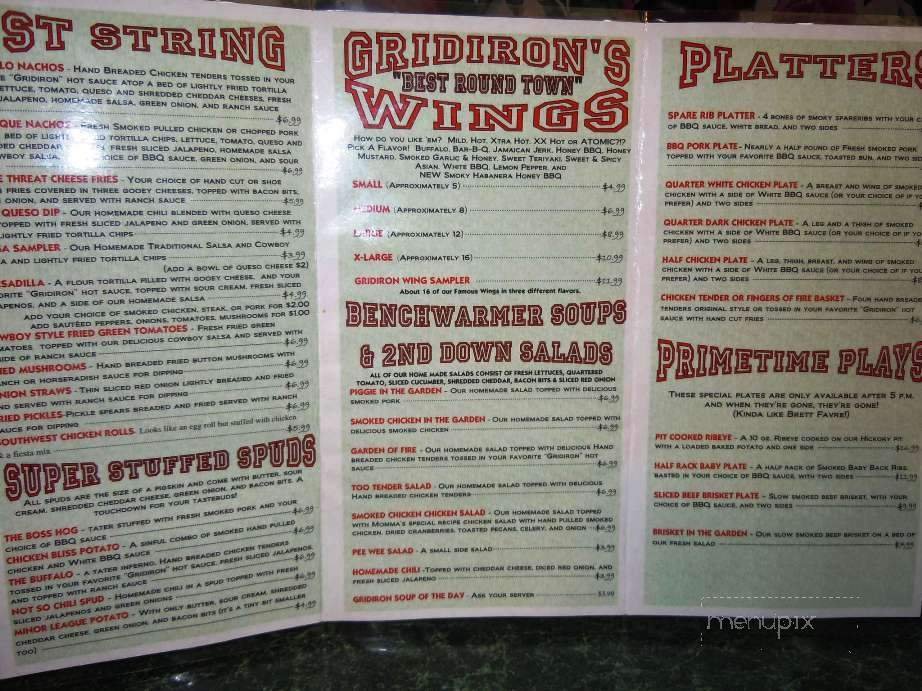 ST STRING
LO NACHOS - Hand Breaded Chicken tenders tossed in your
"Gridiron" hot sauce atop a bed of lightly fried tortilla
ettuce, tomato, queso and shredded cheddar cheeses, fresh
jalapeno, homemade salsa, green onion, and ranch sauce
$6.99
QUE NACHOS - Fresh Smoked pulled chicken or chopped pork
bed of lightly fried tortilla chips, lettuce, tomato, queso and
ded cheddar cheeses, fresh sliced jalapeno, homemade salsa
wboy salsa, choice of BBQ sauce, green onion, and sour
$6.99
E THREAT CHEESE FRIES - Your choice of hand cut or shoe
fries covered in three gooey cheeses, topped with bacon bits,
onion, and served with ranch sauce $5.99
QUESO DIP - Our homemade chili blended with queso cheese
topped with fresh sliced jalapeno and green onion, served with
lightly fried tortilla chips $4.99
SA SAMPLER - Our Homemade Traditional Salsa and Cowboy
a and lightly fried tortilla chips $3.99
(add a bowl of queso cheese $2)
ESADILLA - A flour tortilla filled with gooey cheese, and your
orite "Gridiron" hot sauce, topped with sour cream, fresh sliced
apenos, and a side of our homemade salsa $4.99
add your choice of smoked chicken, steak, or pork for $2.00
Add sautéed peppers, onions, tomatoes, mushrooms for $1.00
WBOY STYLE FRIED GREEN TOMATOES - Fresh fried green
matoes topped with our delicious cowboy salsa and served with
side of ranch sauce $6.99
IED MUSHROOMS - Hand breaded fried button mushrooms with
anch or horseradish sauce for dipping $6.99
NION STRAWS - Thin sliced red onion lightly breaded and fried
nd served with ranch sauce for dipping $6.99
RIED PICKLES - Pickle spears breaded and fried served with ranch
sauce for dipping $6.99
SOUTHWEST CHICKEN ROLLS. Looks like an egg roll but stuffed with chicken
& a fiesta mix $5.99
SUPER STUFFED SPUDS
All spuds are the size of a pigskin and come with butter, sour
cream, shredded cheddar cheese, green onion, and bacon bits. A
touchdown for your tastebuds!
THE BOSS HOG - tater stuffed with fresh smoked pork and your
choice of BBQ sauce $6.99
CHICKEN BLISS POTATO - A sinful combo of smoked hand pulled
chicken and White BBQ sauce $6.99
THE BUFFALO - a tater inferno, Hand breaded chicken tenders
tossed in your favorite "Gridiron" hot sauce, fresh sliced jalapenos,
and topped with ranch sauce $6.99
NOT SO CHILI SPUD - Homemade chili in a spud topped with fresh
sliced jalapenos and green onions $6.99
MINOR LEAGUE POTATO - With only butter, sour cream, shredded
cheddar cheese, green onion, and bacon bits (it's a tiny bit smaller
too) $4.99
GRIDIRON'S
"BEST ROUND TOWN"
WINGS
How do you like 'em? Mild, Hot, Xtra Hot, XX Hot or ATOMIC?!?
Pick A Flavor! Buffalo, Bar-B-Q, Jamaican Jerk, Honey BBQ, Honey
Mustard, Smoked Garlic & Honey, Sweet Teriyaki, Sweet & Spicy
Asian, White BBQ, Lemon Pepper, and
NEW Smoky Habanera Honey BBQ
SMALL (Approximately 5) $4.99
MEDIUM (Approximately 8) $6.99
LARGE (Approximately 12) $8.99
X-LARGE (Approximately 16) $10.99
GRIDIRON WING SAMPLER $11.99
About 16 of our Famous Wings in three different flavors.
BENCHWARMER SOUPS
& 2ND DOWN SALADS
all of our home made salads consist of fresh lettuces, quartered
tomato, sliced cucumber, shredded cheddar, bacon bits & sliced red onion
PIGGIE IN THE GARDEN - Our homemade salad topped with delicious
smoked pork $6.99
SMOKED CHICKEN IN THE GARDEN - Our homemade salad topped with
delicious smoked chicken $6.99
GARDEN OF FIRE - Our homemade salad topped with delicious Hand
breaded chicken tenders tossed in your favorite "Gridiron" hot
sauce $6.99
TOO TENDER SALAD - Our homemade salad topped with delicious
Hand breaded chicken tenders $6.99
SMOKED CHICKEN CHICKEN SALAD - Our homemade salad topped
with Momma's special recipe chicken salad with hand pulled smoked
chicken, dried cranberries, toasted pecans, celery, and onion $6.99
PEE WEE SALAD - A small side salad $3.99
HOMEMADE CHILI - Topped with cheddar cheese, diced red onion, and
fresh sliced jalapeno $3.99
GRIDIRON SOUP OF THE DAY - Ask your server $3.99
PLATTERS
SPARE RIB PLATTER - 4 bones of smoky spareribs with your c
of BBQ sauce, white bread, and two sides
BBQ PORK PLATE - Nearly a half pound of Fresh smoked pork
topped with your favorite BBQ sauce, toasted bun, and two sid
QUARTER WHITE CHICKEN PLATE - A breast and wing of smoked
chicken with a side of White BBQ sauce (or your choice if you
prefer) and two sides
QUARTER DARK CHICKEN PLATE - A leg and a thigh of smoked
chicken with a side of White BBQ sauce (or your choice of if yo
prefer) and two sides
HALF CHICKEN PLATE - A leg, thigh, breast, and wing of smoked
chicken with a side of White BBQ sauce (or your choice of if yo
prefer) and two sides
CHICKEN TENDER OR FINGERS OF FIRE BASKET - Four hand bread
tenders original style or tossed in your favorite "Gridiron" hot
sauce with hand cut fries
PRIMETIME PLAYS
These special plates are only available after 5 p.m.
and when they're gone, they're gone!
(Kinda like Brett Favre!)
PIT COOKED RIBEYE - A 10 oz. Ribeye cooked on our Hickory pit
with a loaded baked potato and one side
HALF RACK BABY PLATE - A half rack of Smoked Baby Back Ribs,
basted in your choice of BBQ sauce, with two sides
SLICED BEEF BRISKET PLATE - Slow smoked beef brisket, with your
choice of BBQ sauce, and two sides $9.99
BRISKET IN THE GARDEN - Our slow smoked beef brisket on a bed of
our fresh salad
menupix